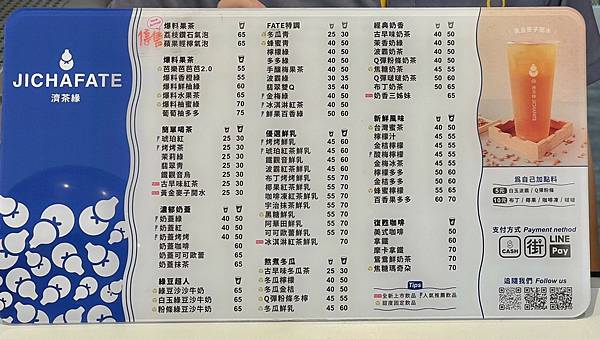 JICHAFATE
濟茶緣
停售
爆料果茶
荔枝鑽石氣泡 65
蘋果經檸氣泡 65
爆料果茶
芭樂芭芭芭2.0 55
爆料香橙綠 55
爆料鮮柚綠 60
爆料水果茶 65
爆料柚蜜綠 70
葡萄柚多多 75
簡單喝茶
琥珀紅 25 30
烤烤茶 25 30
茉莉綠 25 30
翡翠青 25 30
鐵觀音烏 25 30
古早味紅茶 25 30
黃金麥子開水 25 30
濃郁奶蓋
奶蓋綠 40 50
奶蓋紅 40 50
奶蓋烤烤 40 50
奶蓋咖啡 60
奶蓋可可歐蕾 65
奶蓋抹茶 65
綠豆超人
綠豆沙沙牛奶 65
白玉綠豆沙牛奶 65
粉條綠豆沙牛奶 65
FATE特調
冬瓜青 25 30
蜂蜜青 40 50
檸檬紅 40 50
多多綠 40 50
手釀梅果茶 40 50
波霸綠 30 35
翡翠雙Q 35 40
金梅綠 40 50
冰淇淋紅茶 40 50
鮮果百香綠 50 60
優選鮮乳
烤烤鮮乳 45 60
琥珀紅茶鮮乳 45 60
鐵觀音鮮乳 45 60
波霸紅茶鮮乳 55 70
布丁烤烤鮮乳 55 70
椰果紅茶鮮乳 55 70
咖啡凍紅茶鮮乳 55 70
宇治抹茶鮮乳 55 70
黑糖鮮乳 55 70
阿華田鮮乳 55 70
可可歐蕾鮮乳 55 70
冰淇淋紅茶鮮乳 55 70
熬煮冬瓜
古早味冬瓜茶 25 30
冬瓜檸檬 40 50
冬瓜金桔 40 50
Q彈粉條冬檸 45 55
冬瓜鮮乳 45 55
經典奶香
古早味奶茶 40 50
茉香奶綠 40 50
波霸奶茶 40 50
Q彈粉條奶茶 40 50
焦糖奶茶 45 55
Q彈啵啵奶茶 50 60
布丁奶茶 50 65
奶香三姊妹 65
新鮮風味
台灣蜜茶 40 50
檸檬汁 45 55
金桔檸檬 45 55
酸梅檸檬 45 55
金梅冰茶 45 55
檸檬多多 50 60
金桔多多 50 60
蜂蜜檸檬 50 65
百香果多多 60 70
復烈咖啡
美式咖啡 50
拿鐵 60
摩卡拿鐵 65
鴛鴦鮮奶茶 65
焦糖瑪奇朵 70
Tips
全新上市飲品 人氣推薦飲品
甜度固定飲品
黃金麥子開水
濟茶緣 JICHAFATE
為自己加點料
5元 白玉波霸 / Q彈粉條
10元 布丁 / 椰果 / 咖啡凍 / 啵啵
支付方式 Payment nethod
CASH 街 LINE Pay
追隨我們 Follow us